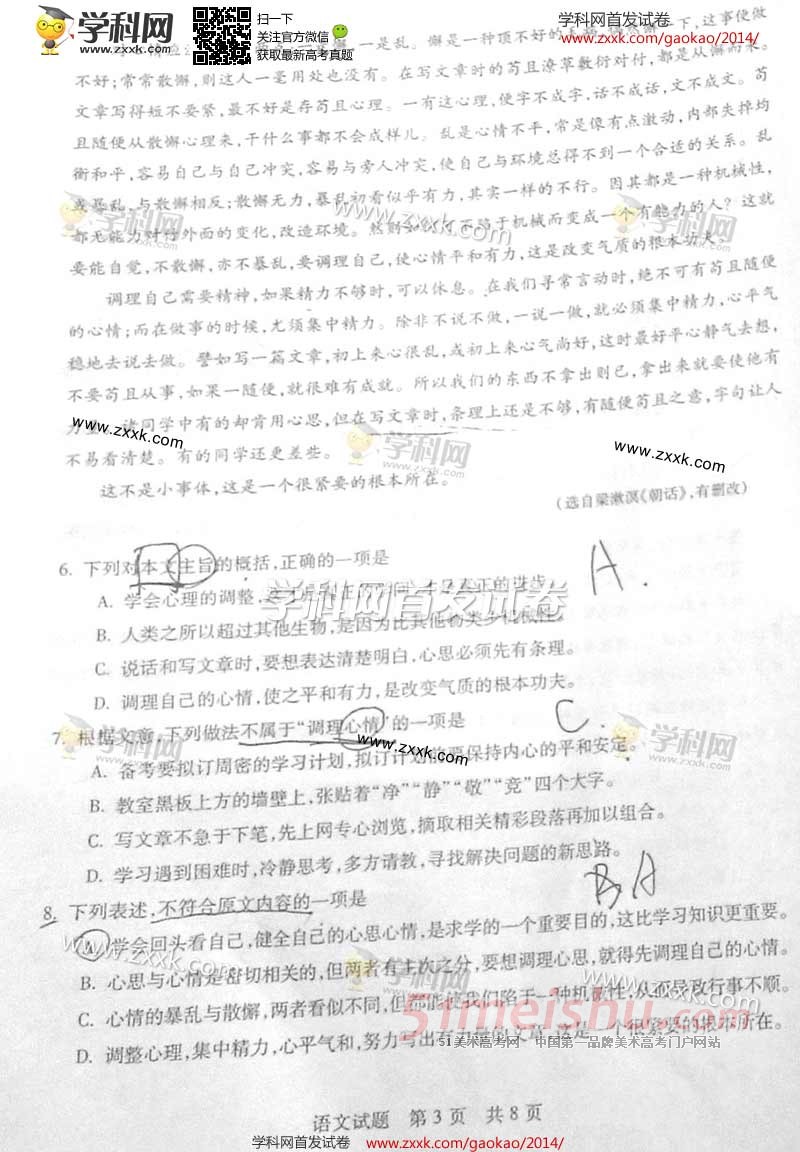 学科网
www.zxxk.com
扫一下
关注官方微信
获取最新高考真题
学科网首发试卷
www.zxxk.com/gaokao/2014/
一是乱。懈是一种顶不好的
下,这事便做
不好;常常散懈,则这人一毫用处也没有。在写文章时的苟且潦草敷衍对付,都是从懈而来。
文章写得短不要紧,最不好是存苟且心理。一有这心理,便字不成字,话不成话,文不成文。苟
且随便从散懈心理来,干什么事都不会成样儿。乱是心情不平,常是像有点激动,内部失掉均
衡和平,容易自己与自己冲突,容易与旁人冲突,使自己与环境总得不到一个合适的关系。乱
或暴乱,与散懈相反;散懈无力,暴乱初看似乎有力,其实一样的不行。因其都是一种机械性,
都无能力对付外面的变化,改造环境。然则如何可不陷于机械而变成一个有能力的人?这就
要能自觉,不散懈,亦不暴乱,要调理自己,使心情平和有力,这是改变气质的根本功夫。
调理自己需要精神,如果精力不够时,可以休息。在我们寻常言动时,绝不可有苟且随便
的心情;而在做事的时候,尤须集中精力。除非不说不做,一说一做,就必须集中精力,心平气
稳地去说去做。譬如写一篇文章,初上来心很乱,或初上来心气尚好,这时最好平心静气去想,
不要苟且从事,如果一随便,就很难有成就。所以我们的东西不拿出则已,拿出来就要使他有
力量。诸同学中有的却肯用心思,但在写文章时,条理上还是不够,有随便苟且之意,字句让人
不易看清楚。有的同学还更差些。
这不是小事体,这是一个很紧要的根本所在。
(选自梁漱溟《朝话》,有删改)
6. 下列对本文主旨的概括,正确的一项是
A.
A. 学会心理的调整,这才是真正的学问,才是真正的进步。
B. 人类之所以超过其他生物,是因为比其他物类少机械性。
C. 说话和写文章时,要想表达清楚明白,心思必须先有条理。
D. 调理自己的心情,使之平和有力,是改变气质的根本功夫。
7. 根据文章,下列做法不属于“调理心情”的一项是
C.
A. 备考要拟订周密的学习计划,拟订计划前要保持内心的平和安定。
B. 教室黑板上方的墙壁上,张贴着“净”“静”“敬”“竞”四个大字。
C. 写文章不急于下笔,先上网专心浏览,摘取相关精彩段落再加以组合。
D. 学习遇到困难时,冷静思考,多方请教,寻找解决问题的新思路。
BA
8. 下列表述,不符合原文内容的一项是
A. 学会回头看自己,健全自己的心思心情,是求学的一个重要目的,这比学习知识更重要。
B. 心思与心情是密切相关的,但两者有主次之分,要想调理心思,就得先调理自己的心情。
C. 心情的暴乱与散懈,两者看似不同,但都能使我们陷于一种机械性,从而导致行事不顺。
D. 调整心理,集中精力,心平气和,努力写出有力量的文章,这是一个很紧要的根本所在。
51meishu.com
51美术高考网 中国第一品牌美术高考门户网站
语文试题 第3页 共8页
学科网首发试卷
www.zxxk.com/gaokao/2014/